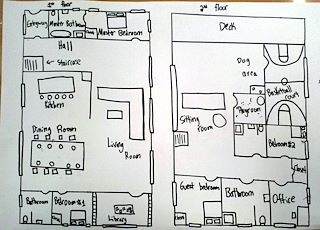 1st floor
Entryway
Master Bathroom
Master Bedroom
Hall
← Staircase
Kitchen
Dining Room
Living Room
Bathroom
Bedroom #1
Library
2nd floor
Deck
Dog area
Basketball court
Sitting Room
Playroom
Bedroom #2
Closet
Guest bedroom
Bathroom
Office